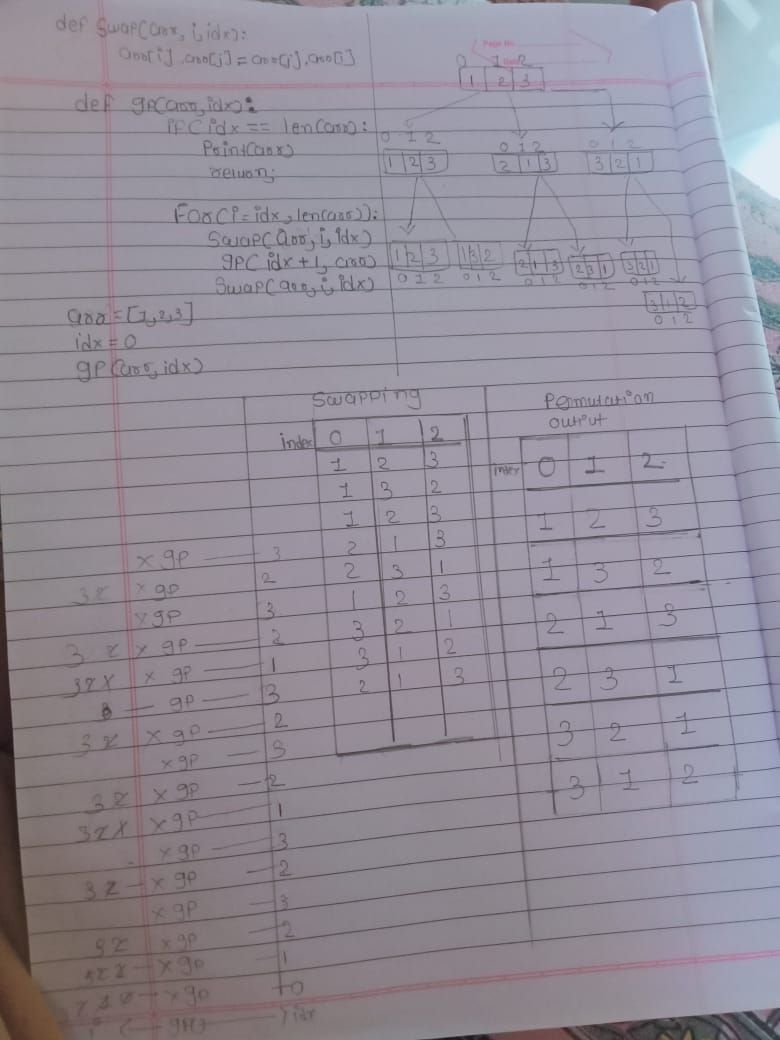 def swap(arr, i, idx):
arr[i], arr[j] = arr[j], arr[i]
def gp(arr, idx):
if( idx == len(arr):
Print(arr)
return;
For(i=idx, len(arr)):
Swap(arr, i, idx)
gp( idx+1, arr)
Swap(arr, i, idx)
arr = [1,2,3]
idx = 0
gp(arr, idx)
Page No.
0 1 2
1 2 3
0 1 2
0 1 2
0 1 2
1 2 3
2 1 3
3 2 1
1 2 3
1 3 2
2 1 3
2 3 1
3 2 1
0 1 2
0 1 2
0 1 2
0 1 2
0 1 2
3 1 2
0 1 2
Swapping
index 0 1 2
1 2 3
1 3 2
1 2 3
2 1 3
2 3 1
1 2 3
3 2 1
3 1 2
2 1 3
Permutation
output
index 0 1 2
1 2 3
1 3 2
2 1 3
2 3 1
3 2 1
3 1 2
x gp 3
3 2 x gp 2
x gp 3
3 2 x gp 2
3 2 x x gp 1
gp 3
3 2 x gp 2
x gp 3
3 2 x gp 2
3 2 x x gp 1
x gp 3
3 2 x gp 2
x gp 3
3 2 x gp 2
x gp 1
x gp 0
idx